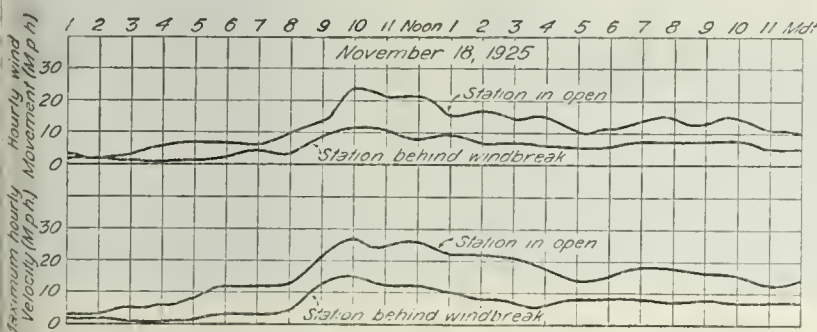 1 2 3 4 5 6 7 8 9 10 11 Noon 1 2 3 4 5 6 7 8 9 10 11 Mdt
November 18, 1925
Hourly wind
Movement (Mph)
30
20
10
0
Station in open
Station behind windbreak
hourly
Velocity (Mph)
30
20
10
0
Station in open
Station behind windbreak